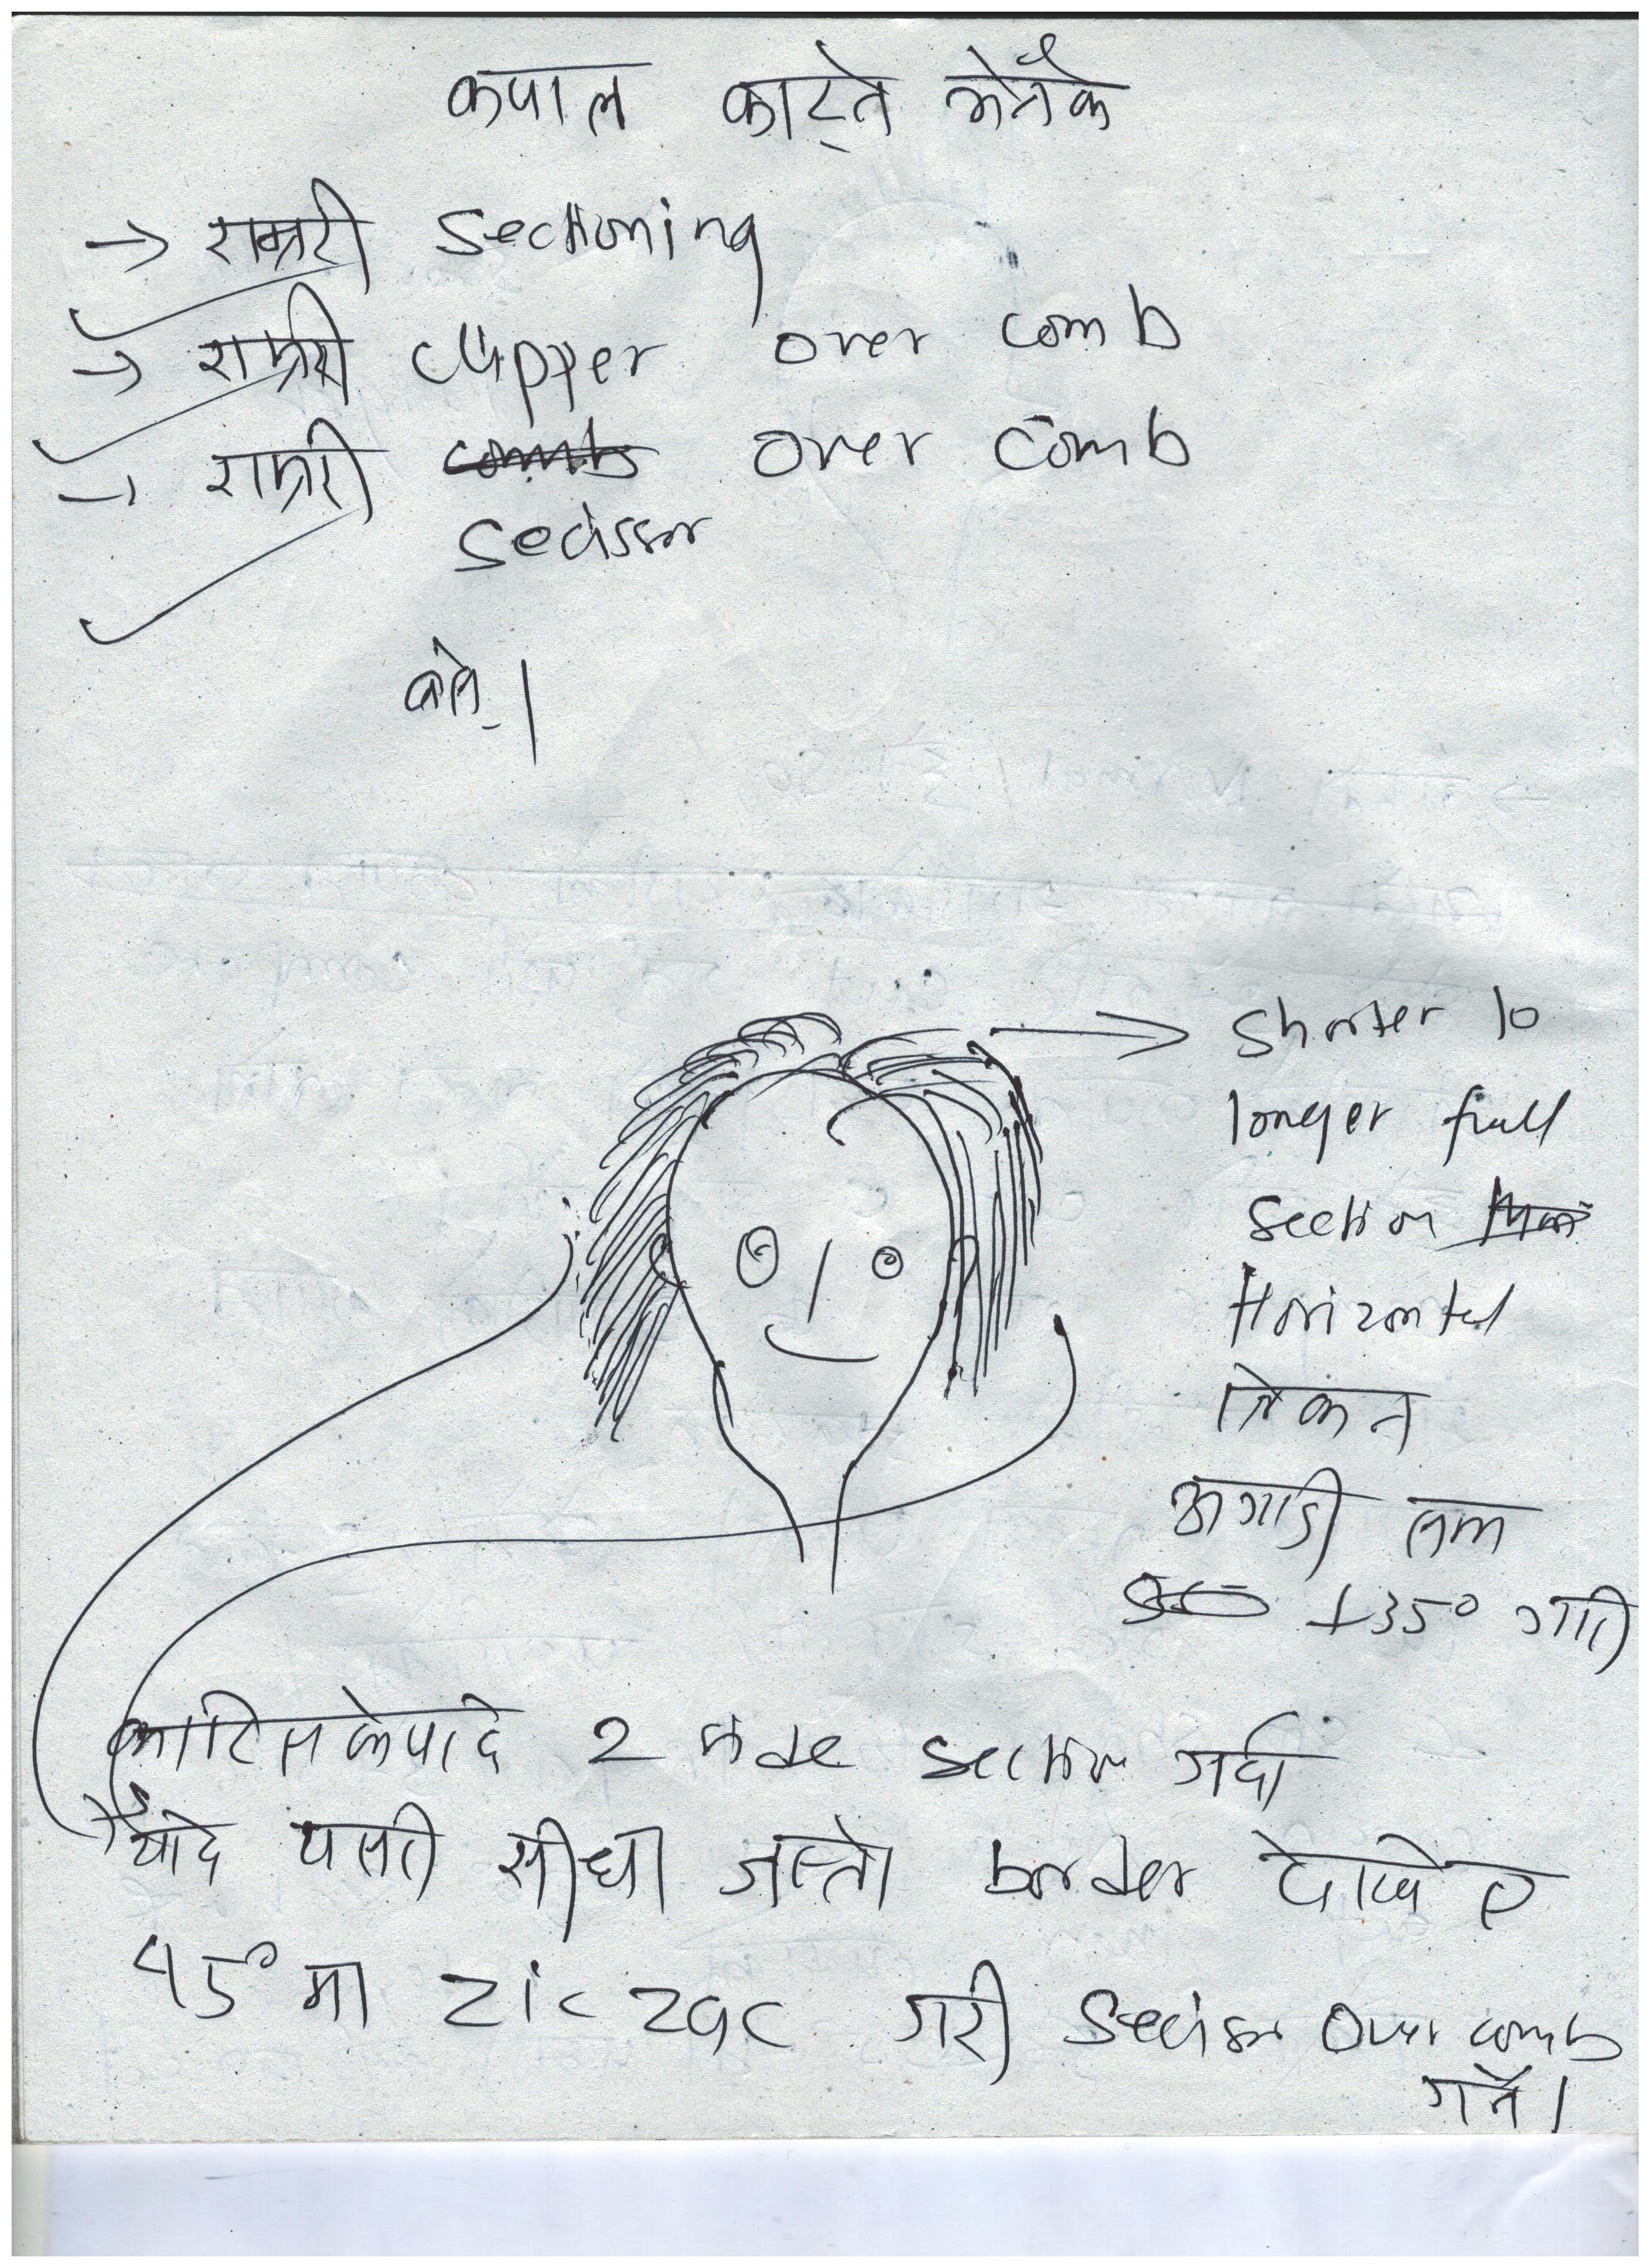 कपाल काट्ने भनेकै
→ राम्ररी sectioning
→ राम्ररी clipper over comb
→ राम्ररी comb over comb
Secissor
Shorter to
longer full
Section
Horizontal
अगाडी सम्म
135° गरी
2 side section गर्दा
यदि यसरी सीधा जस्तो border देखिए
45° मा zic zac गरी Secissor over comb
गर्ने।